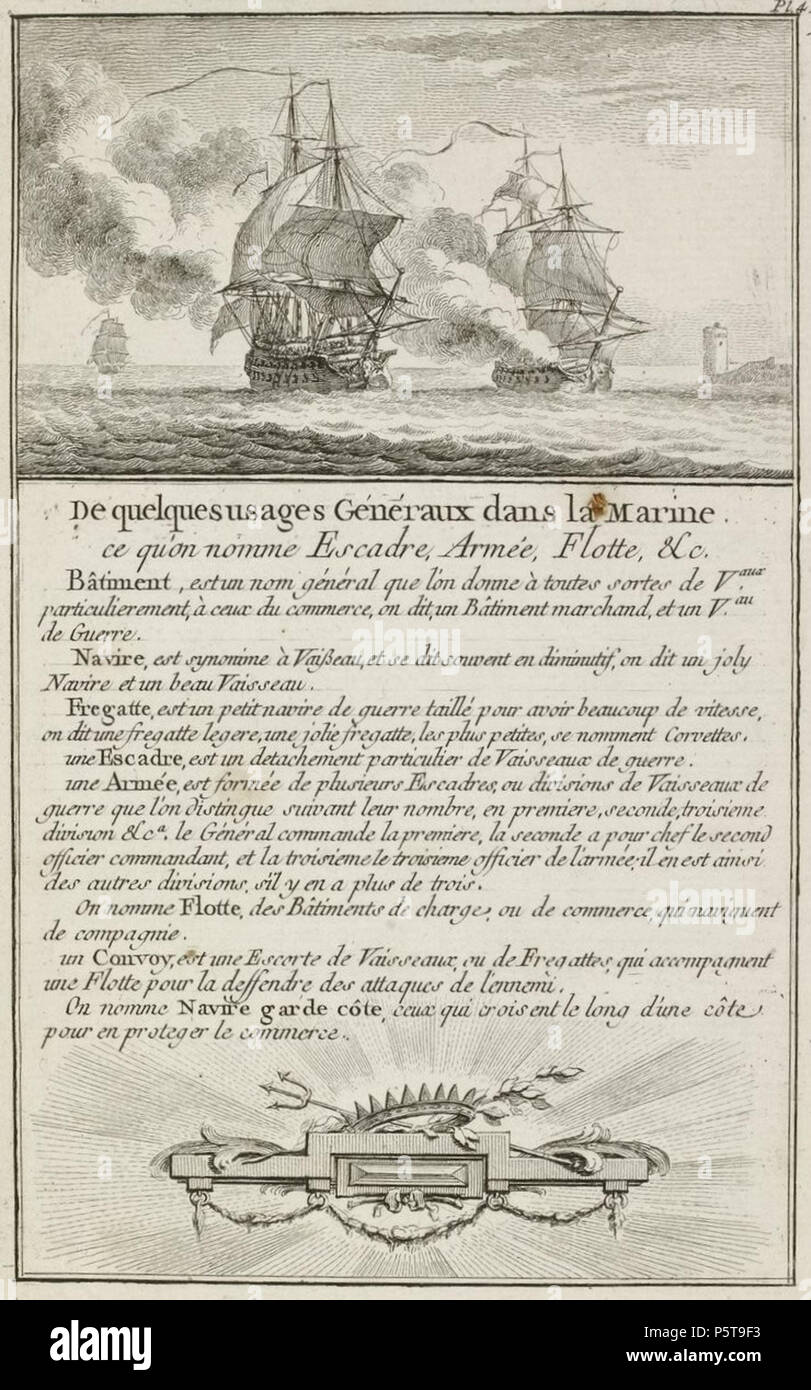 Pl. 4.
De quelques usages Généraux dans la Marine.
ce qu'on nomme Escadre, Armée, Flotte, &c.
Bâtiment, est un nom général que l'on donne à toutes sortes de V.aux
particulierement, à ceux du commerce, on dit, un Bâtiment marchand, et un V.au
de Guerre.
Navire, est synonime à Vaißeau, et se dit souvent en diminutif, on dit un joly
Navire et un beau Vaisseau.
Fregatte, est un petit navire de guerre taillé pour avoir beaucoup de vitesse,
on dit une fregatte legere, une jolie fregatte, les plus petites, se nomment Corvettes.
une Escadre, est un detachement particulier de Vaisseaux de guerre.
une Armée, est formée de plusieurs Escadres, ou divisions de Vaisseaux de
guerre que l'on distingue suivant leur nombre, en premiere, seconde, troisieme
division &c.a le Général commande la premiere, la seconde a pour chef le second
officier commandant, et la troisieme le troisieme officier de l'armée; il en est ainsi
des autres divisions, s'il y en a plus de trois.
On nomme Flotte, des Bâtiments de charge, ou de commerce, qui naviguent
de compagnie.
un Convoy, est une Escorte de Vaisseaux, ou de Fregattes, qui accompagnent
une Flotte pour la deffendre des attaques de l'ennemi.
On nomme Navire garde côte, ceux qui croisent le long d'une côte
pour en proteger le commerce.
alamy
alamy
alamy
alamy
Image ID: P5T9F3
www.alamy.com